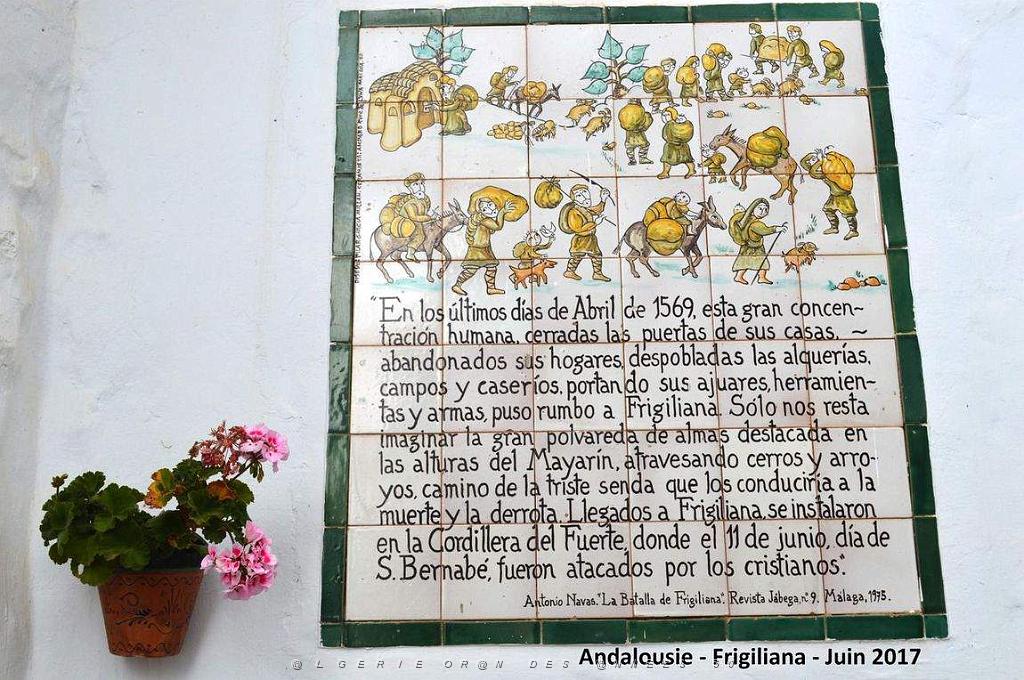 "En los últimos días de Abril de 1569, esta gran concen-
tración humana, cerradas las puertas de sus casas, ~
abandonados sus hogares, despobladas las alquerías,
campos y caseríos, portando sus ajuares, herramien-
tas y armas, puso rumbo a Frigiliana. Sólo nos resta
imaginar la gran polvareda de almas destacada en
las alturas del Mayarín, atravesando cerros y arro-
yos, camino de la triste senda que los conduciría a la
muerte y la derrota. Llegados a Frigiliana, se instalaron
en la Cordillera del Fuerte, donde el 11 de junio, día de
S. Bernabé, fueron atacados por los cristianos".
Antonio Navas. "La Batalla de Frigiliana". Revista Jábega, nº 9. Málaga, 1975.
Andalousie - Frigiliana - Juin 2017
@LGERIE OR@N DES @NNEES 50